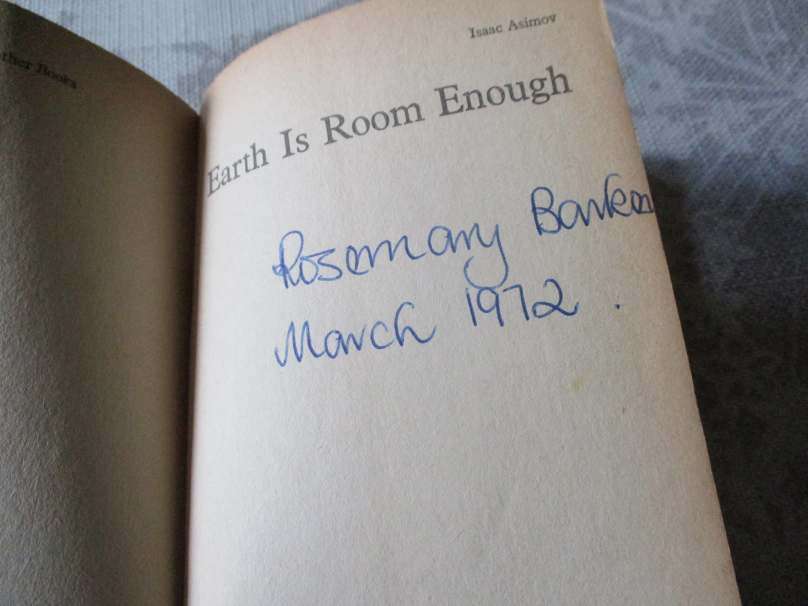 Isaac Asimov
ther Books
Earth Is Room Enough
Rosemary Barker
March 1972.